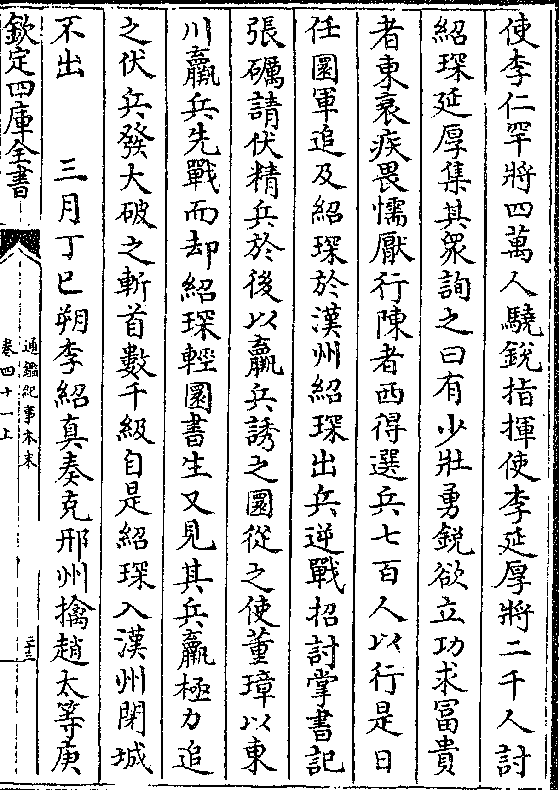 使李仁罕將四萬人驍銳指揮使李延厚將二千人討
紹琛延厚集其衆詢之曰有少壯勇銳欲立功求冨貴
者東衰疾畏懦厭行陳者西得選兵七百人以行是日
任圜軍追及紹琛於漢州紹琛出兵逆戰招討掌書記
張礪請伏精兵於後以羸兵誘之圜從之使董璋以東
川羸兵先戰而却紹琛輕圜書生又見其兵羸極力追
之伏兵發大破之斬首數千級自是紹琛入漢州閉城
不出　三月丁巳朔李紹真奏克邢州擒趙太等庚
欽定四庫全書
通鑑紀事本末
卷四十一上
三十二